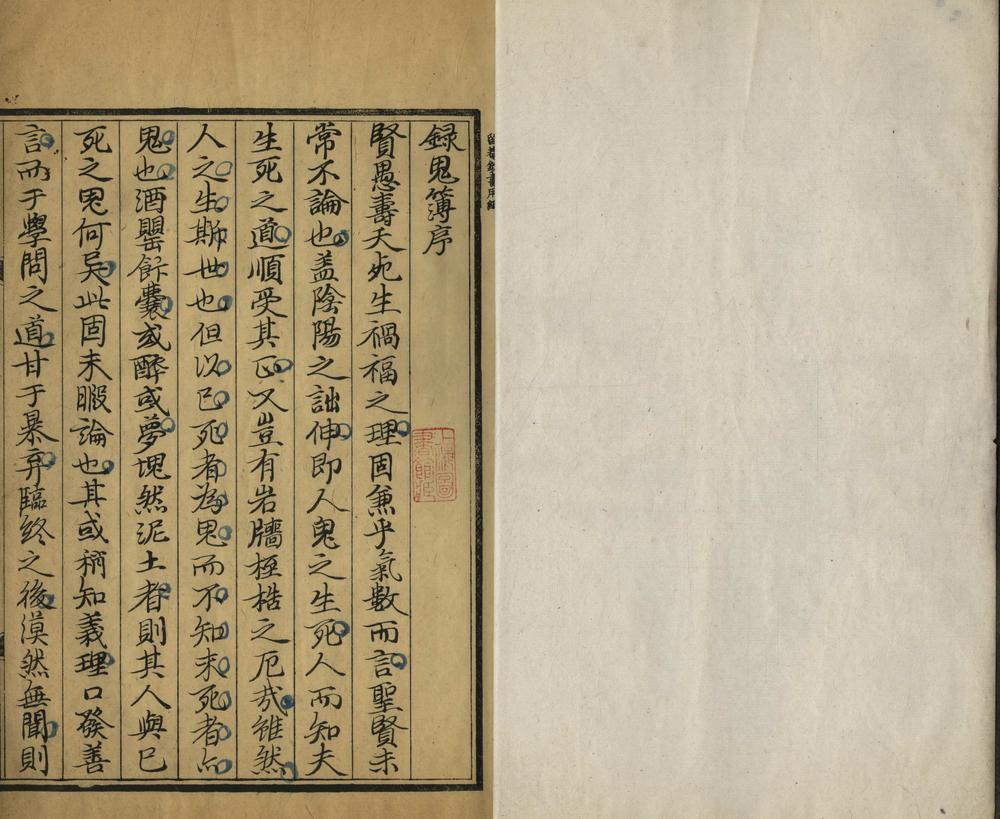 録鬼簿序
賢愚壽夭死生禍福之理固兼乎氣數而言聖賢未
常不論也蓋陰陽之詘伸即人鬼之生死人而知夫
生死之道順受其正又豈有岩牆桎梏之厄哉雖然
人之生斯世也但以已死者為鬼而不知未死者亦
鬼也酒罌飯囊或醉或夢塊然泥土者則其人與已
死之鬼何異此固未暇論也其或稍知義理口發善
言而于學問之道甘于暴弃臨終之後漠然無聞則
上海圖書館藏